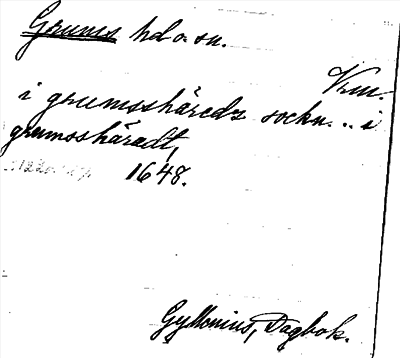 Grums hd o. sn.
Vrm.
i grumsshäreds sockn... i
grumsshäradt,
1648.
Gyllenius, Dagbok.